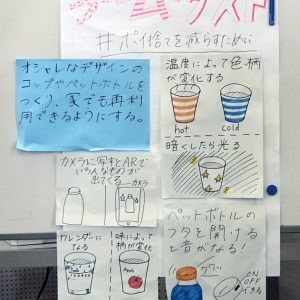 #ポイ捨てを減らすために
オシャレなデザインの
コップやペットボトルを
つくり、家でも再利
用できるようにする。
温度によって色柄
が変化する
hot
cold
暗くしたら光る
カメラに写すとARで
いろんなものが
出てくる
カメラ
カレンダーに
なる
味によって
柄が変化
Apple
ペットボトルの
フタを開ける
と音がなる!
ON
OFF
できる